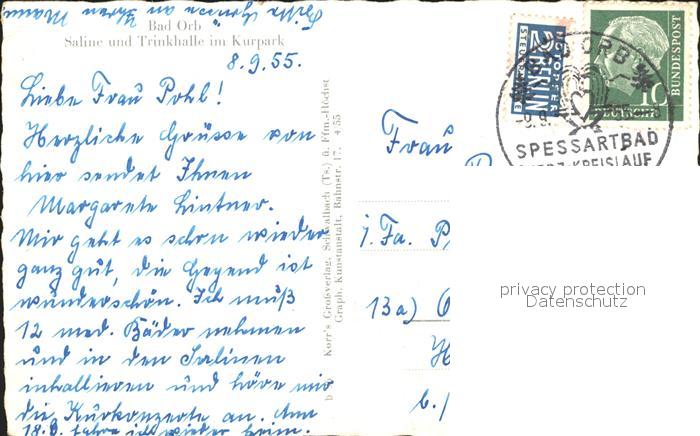 Bitte Grüsse an Ihren Mann
Bad Orb
Saline und Trinkhalle im Kurpark
8.9.55.
Liebe Frau Pohl!
Herzliche Grüsse von
hier sendet Ihnen
Margarete Lintner.
Mir geht es schon wieder
ganz gut, die Gegend ist
wunderschön. Ich muß
12 med. Bäder nehmen
und in den Salinen
inhallieren und höre mir
die Kurkonzerte an. Am
18.9. fahre ich wieder heim.
Korr's Großverlag, Schwalbach (Ts.) ü. Ffm.-Höchst
Graph. Kunstanstalt, Bahnstr. 17. 4 55
NOTOPFER
2 BERLIN
STEUERMARKE
DEUTSCHE
BUNDESPOST
10
BAD ORB
SPESSARTBAD
HERZ-KREISLAUF
Frau
i. Fa. P
13a)
H
b.
privacy protection
Datenschutz